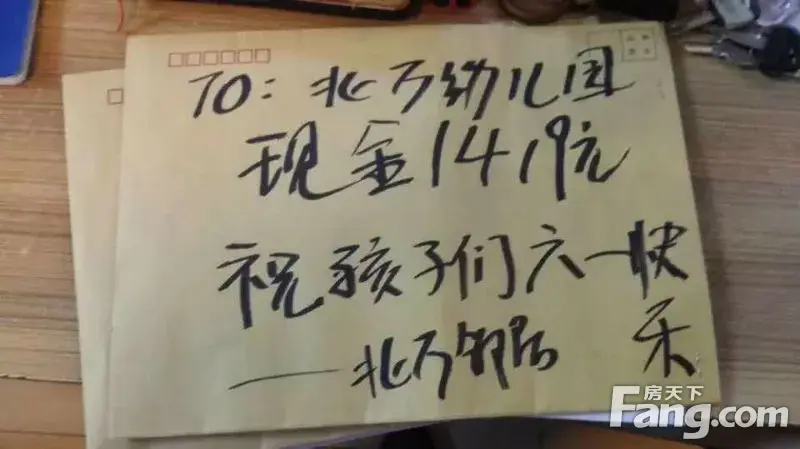 TO:北万幼儿园
现金1419元
祝孩子们六一快
乐
——北万邻居
房天下
Fang.com